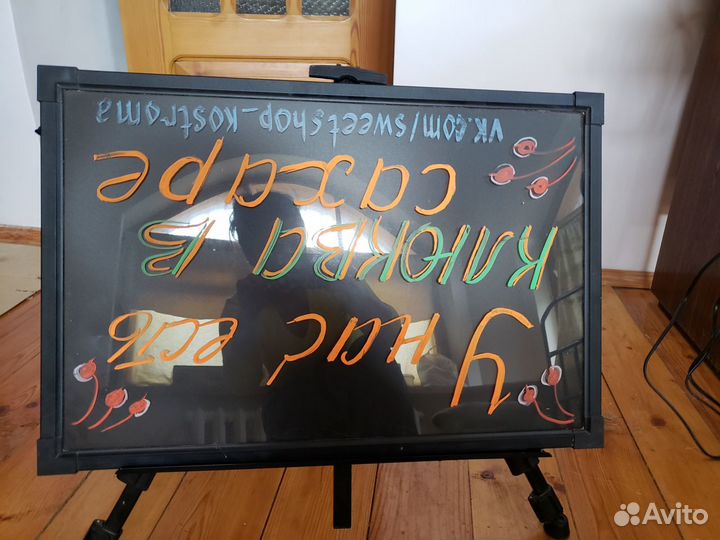 У нас есть
КЛЮКВА В
сахаре
vk.com/sweetshop_kostroma
Avito